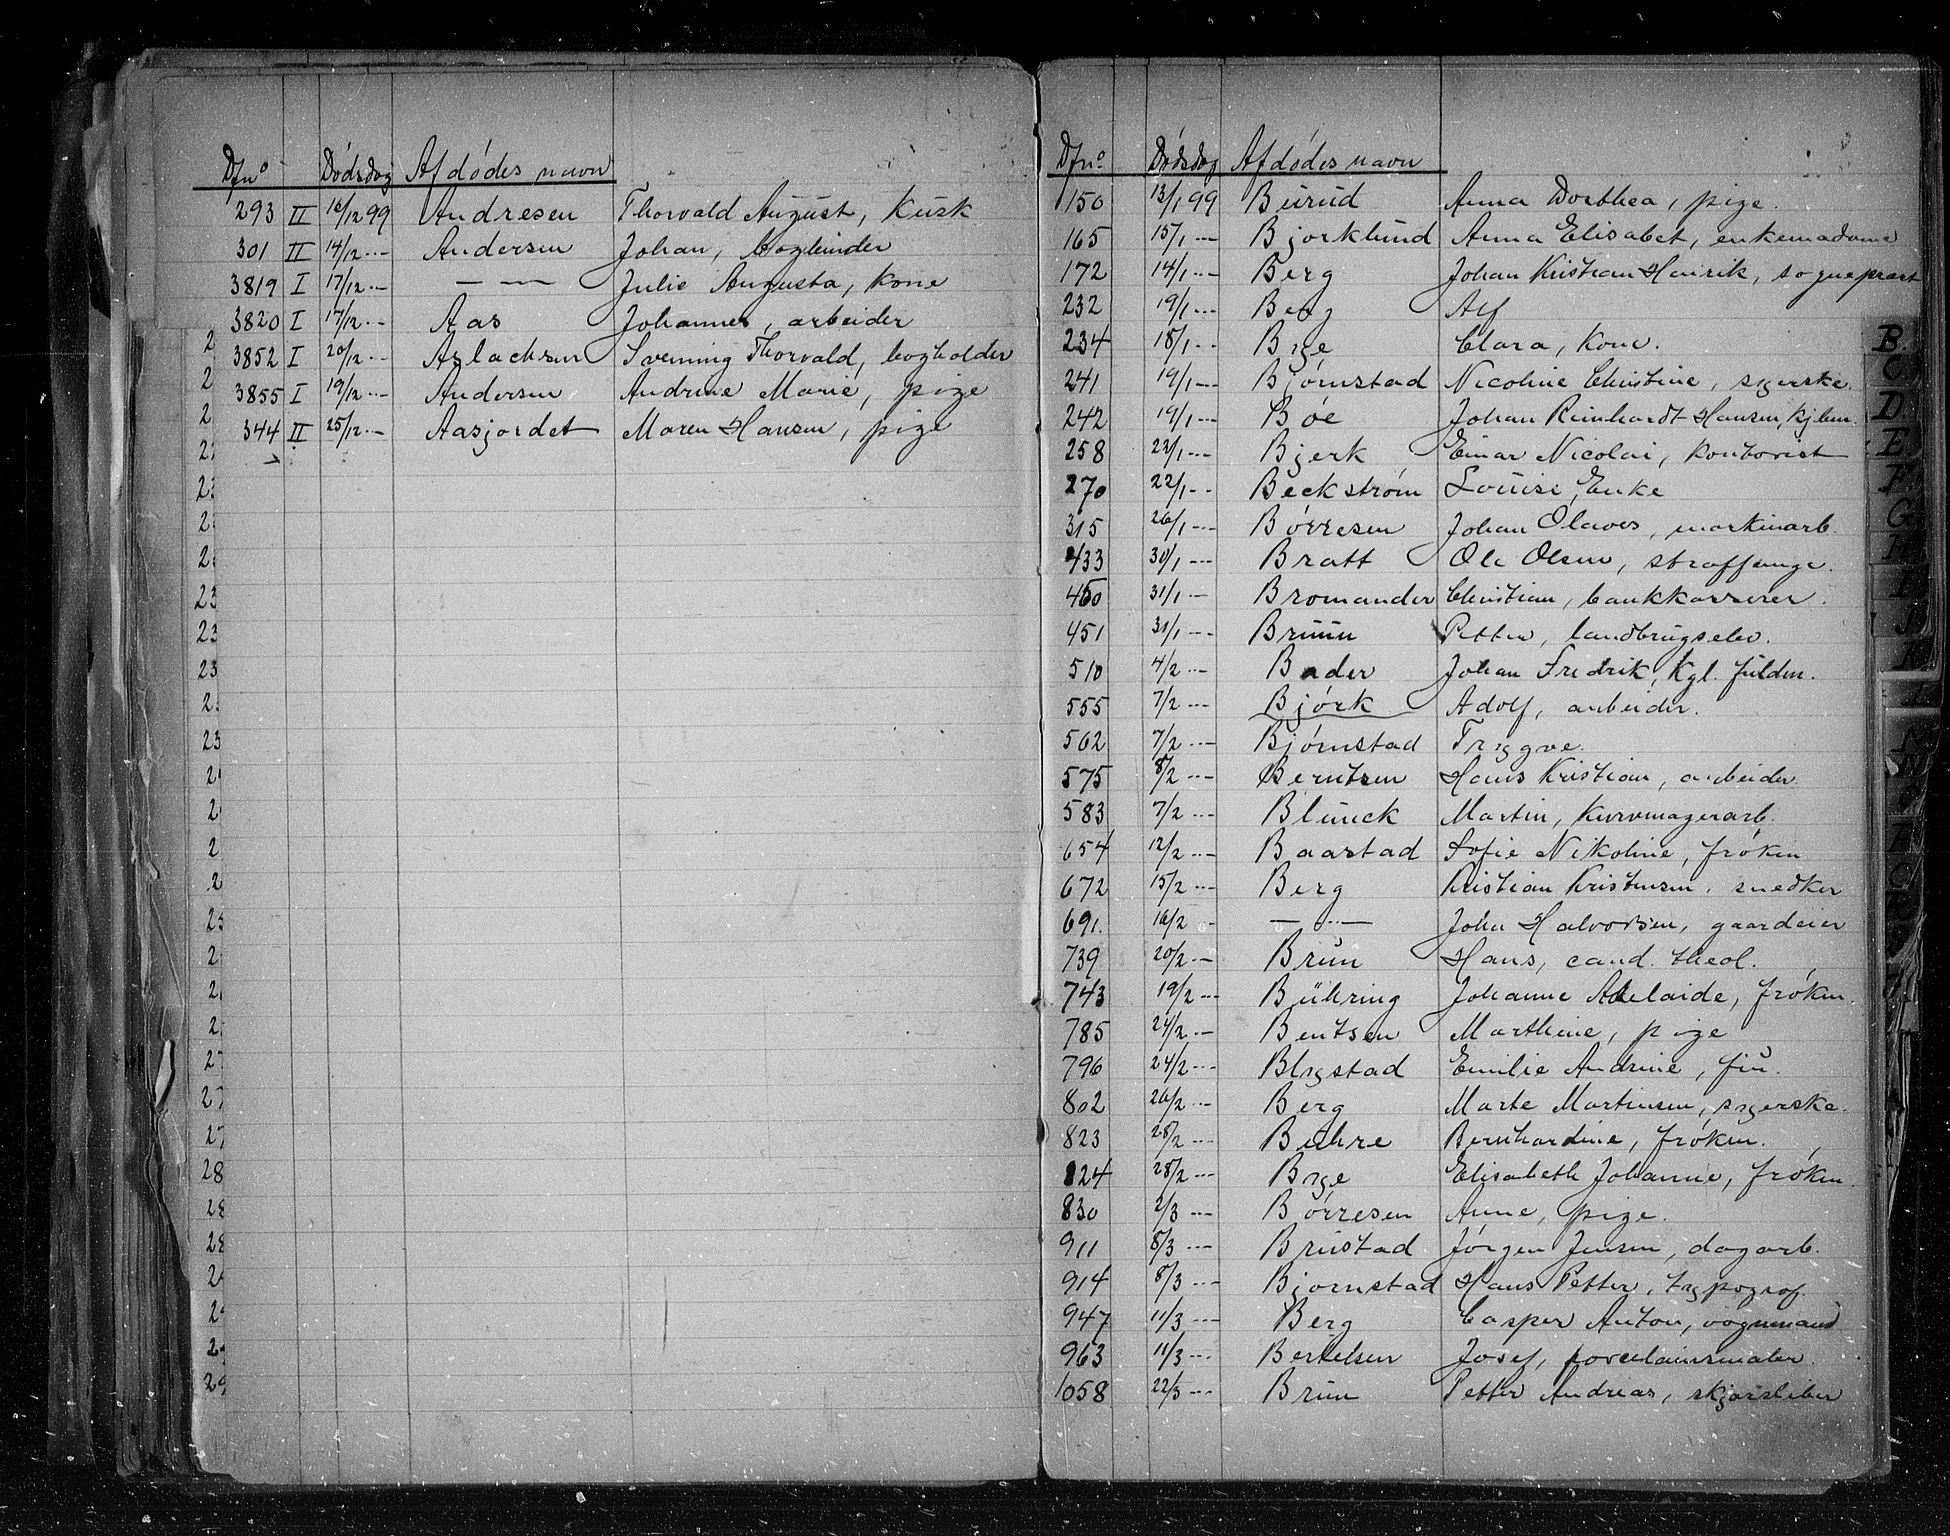 Dfnº Dødsdag Afdødes navn
293 II 10/12 99 Andresen Thorvald August, Kusk
301 II 14/12 --- Andersen Johan, bogbinder
3819 I 17/12 --- — — Julie Augusta, kone
3820 I 17/12 --- Aas Johannes, arbeider
3852 I 20/12 --- Aslachsen Svenning Thorvald, bogholder
3855 I 19/12 --- Andersen Andrine Marie, pige
344 II 25/12 --- Aasjordet Maren Hansen, pige
Dfnº Dødsdag Afdødes navn
150 13/1 99 Burud Anna Dorthea, pige.
165 15/1 --- Bjorklund Anna Elisabet, enkemadame
172 14/1 --- Berg Johan Kristian Henrik, sogneprest
232 19/1 --- Berg Alf
234 18/1 -- Bye Clara, kone.
241 19/1 --- Bjørnstad Nicoline Christine, syerske.
242 19/1 --- Bøe Johan Reinhardt Hansen, kjlem.
258 23/1 --- Bjerk Einar Nicolai, kontorist
270 22/1 -- Beckstrøm Louise, Enke
315 26/1 --- Børresen Johan Olaves, maskinarb.
433 30/1 --- Bratt Ole Olsen, straffange.
450 31/1 -- Bromander Christian, bankkasserer.
451 31/1 --- Bruun Petter, landbrugselev.
510 4/2 --- Bader Johan Fredrik, Kgl. fuldm.
555 7/2 --- Bjørk Adolf, arbeider.
562 7/2 --- Bjørnstad Tryggve.
575 8/2 --- Berntsen Hans Kristian, arbeider.
583 7/2 --- Blunck Martin, kurvmagerarb.
654 12/2 --- Baastad Sofie Nikoline, frøken
672 15/2 --- Berg Kristian Kristensen, snedker
691. 16/2 - — — John Halvorsen, gaardeier
739 20/2 -- Brun Hans, cand. theol.
743 19/2 --- Bühring Johanne Adelaide, frøken.
785 24/2 -- Bentsen Marthine, pige
796 24/2 --- Blystad Emilie Andrine, fru.
802 26/2 --- Berg Marte Martinsen, syerske.
823 28/2 --- Buhre Bernhardine, frøken.
824 28/2 --- Bye Elisabeth Johanne, frøken.
830 2/3 --- Børresen Anne, pige.
911 8/3 --- Brustad Jørgen Jensen, dagarb.
914 8/3 --- Bjornstad Hans Petter, typograf.
947 11/3 --- Berg Casper Anton, vognmand
963 11/3 --- Bertelsen Josef, porcelainsmaler.
1058 22/3 --- Brun Petter Andreas, skjærsliber
B.
C.
D.
E
F.
G
H
I
J
K
L
M
N